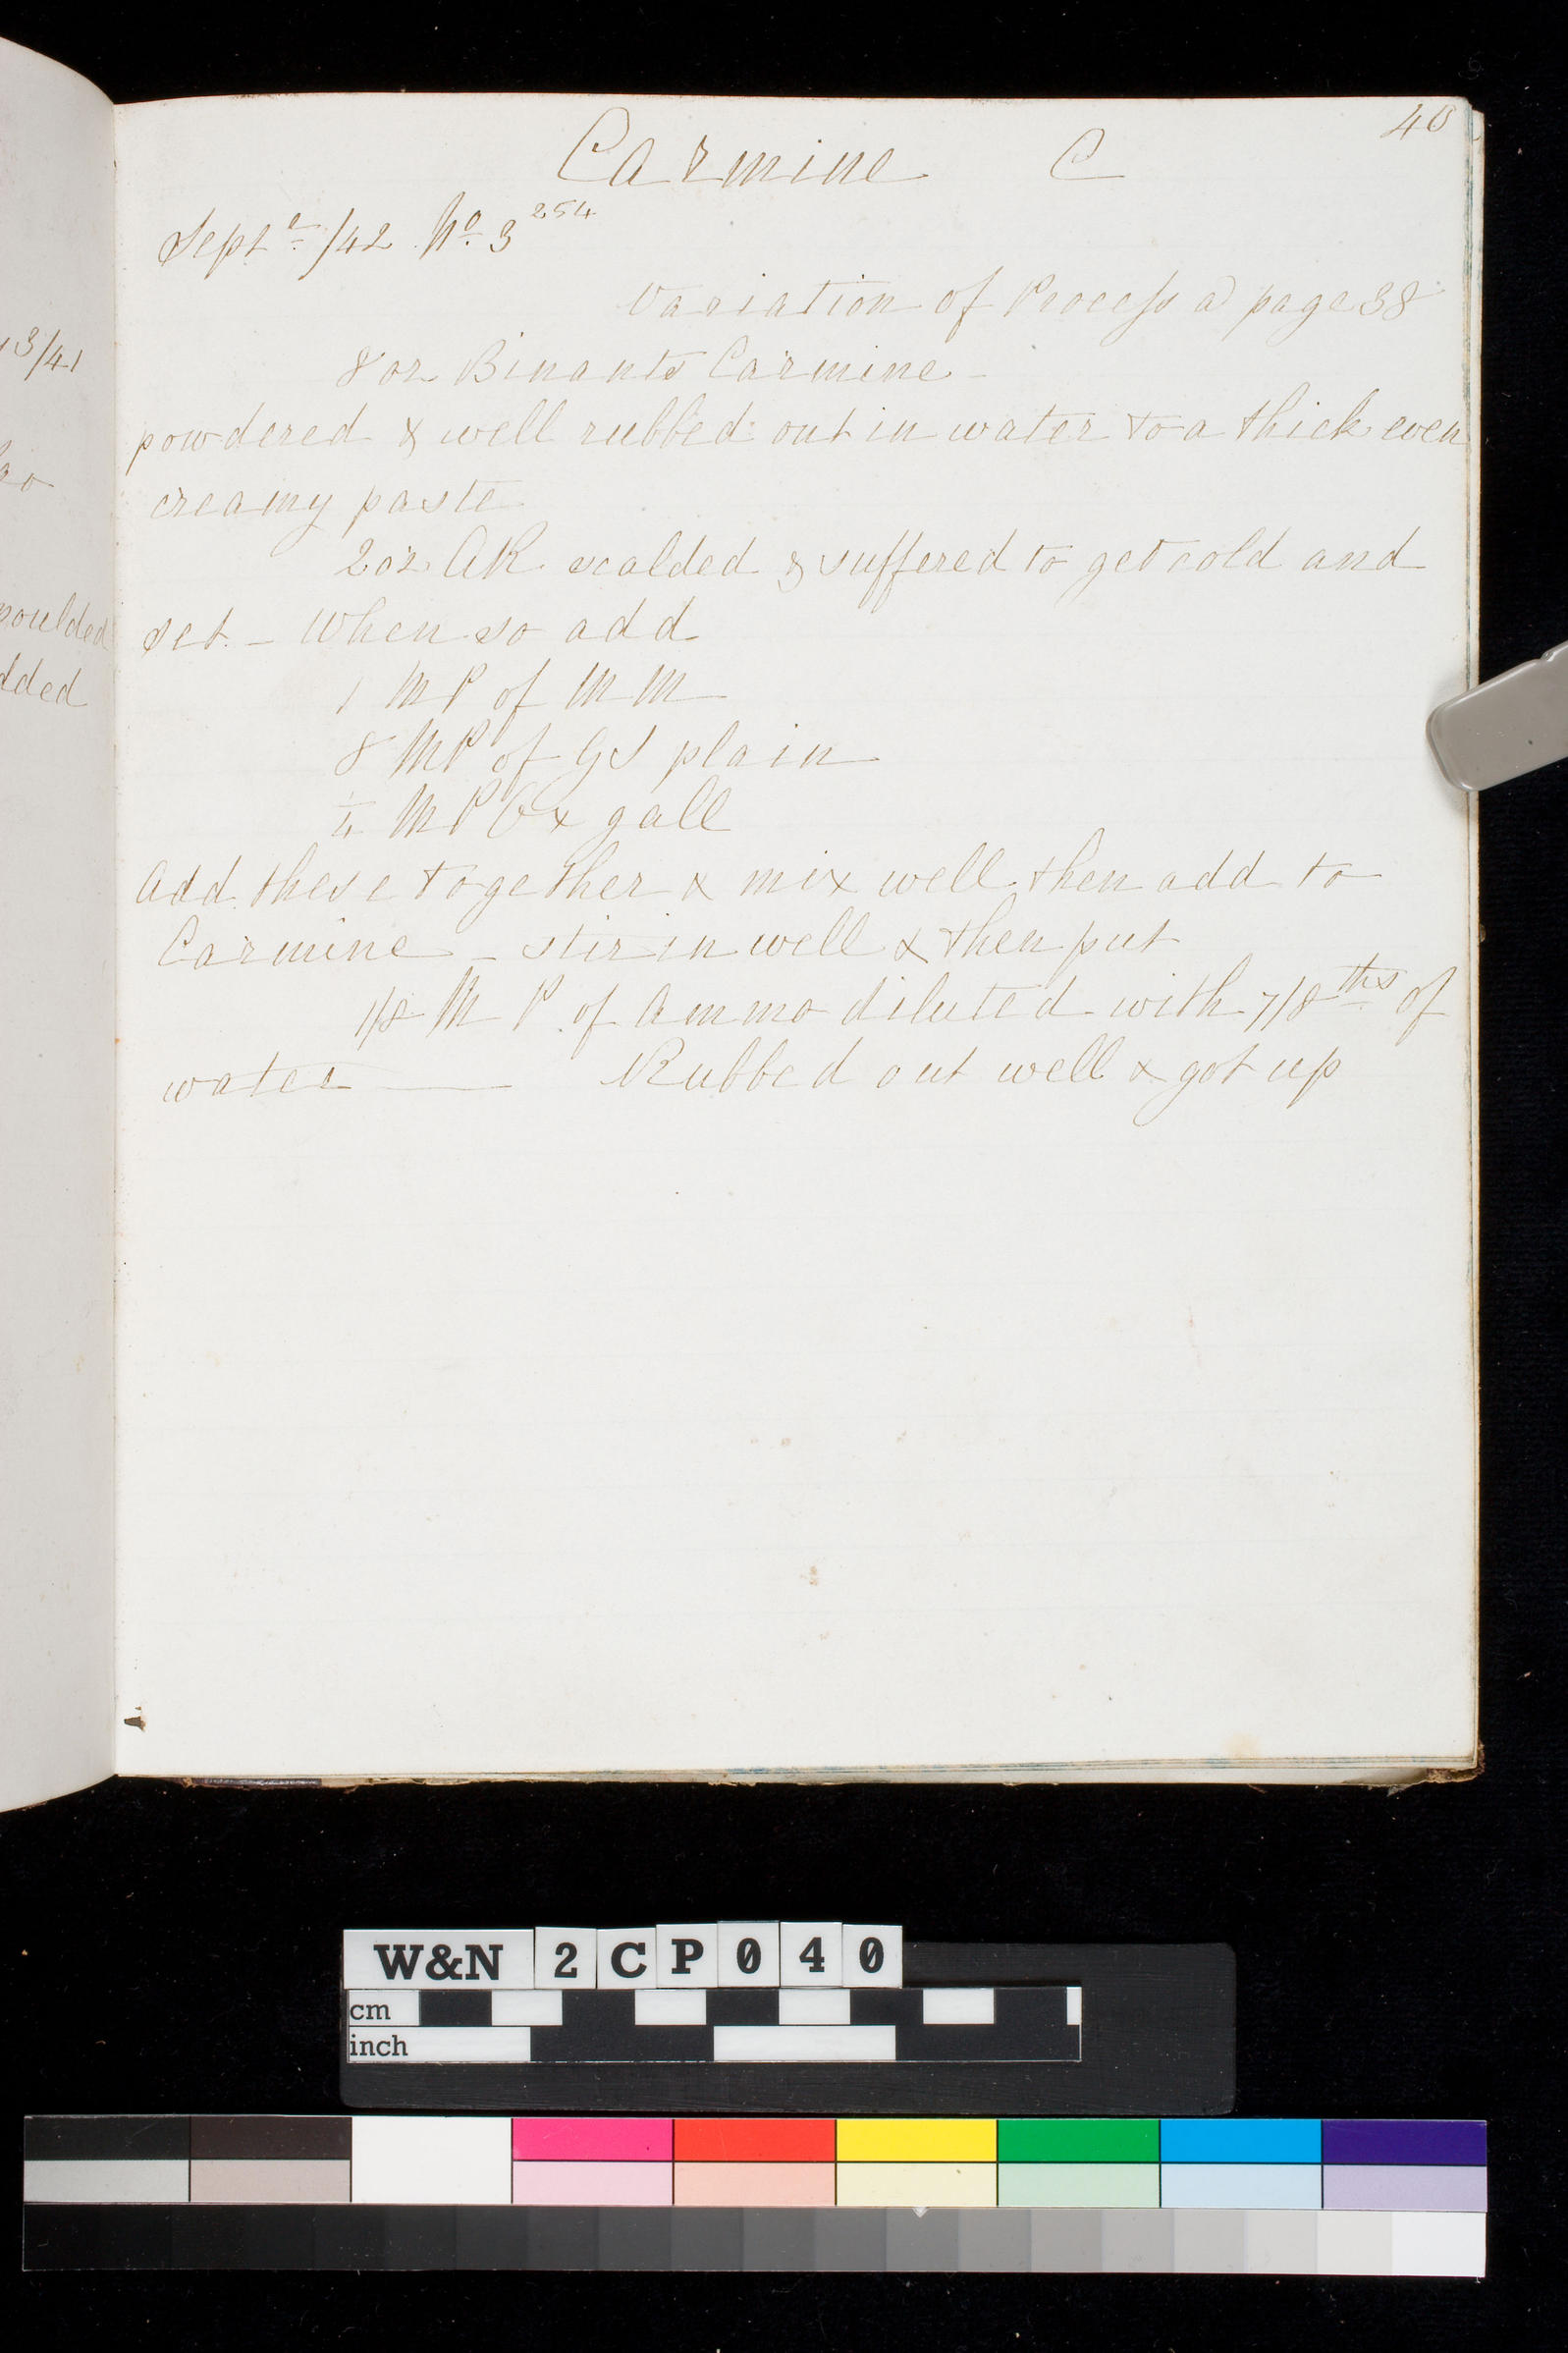 40
Carmine C
Septr /42 No. 3 254
Variation of Process @ page 38
8 oz Binants Carmine -
powdered & well rubbed out in water to a thick even
creamy paste
2 oz AR scalded & suffered to get cold and
set. - When so add
1 MP of MM
8 MP of GS plain
1/4 MP Ox gall
Add these together & mix well then add to
Carmine - stir in well & then put
1/8 MP. of Ammo diluted with 7/8ths of
water — Rubbed out well & got up
13/41
poulded
dded
W&N 2CP040
cm
inch